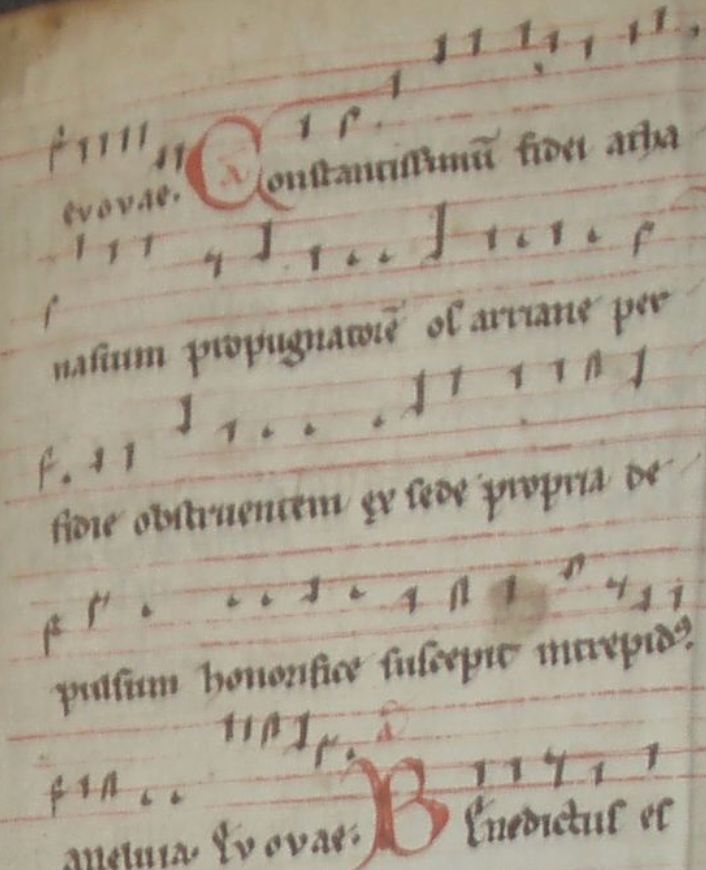 evovae. Constantissimū fidei atha
nasium propugnatorē os arriane per
fidie obstruentem ex sede propria de
pulsum honorifice suscepit intrepidꝰ
alleluia. Evovae. Benedictus es